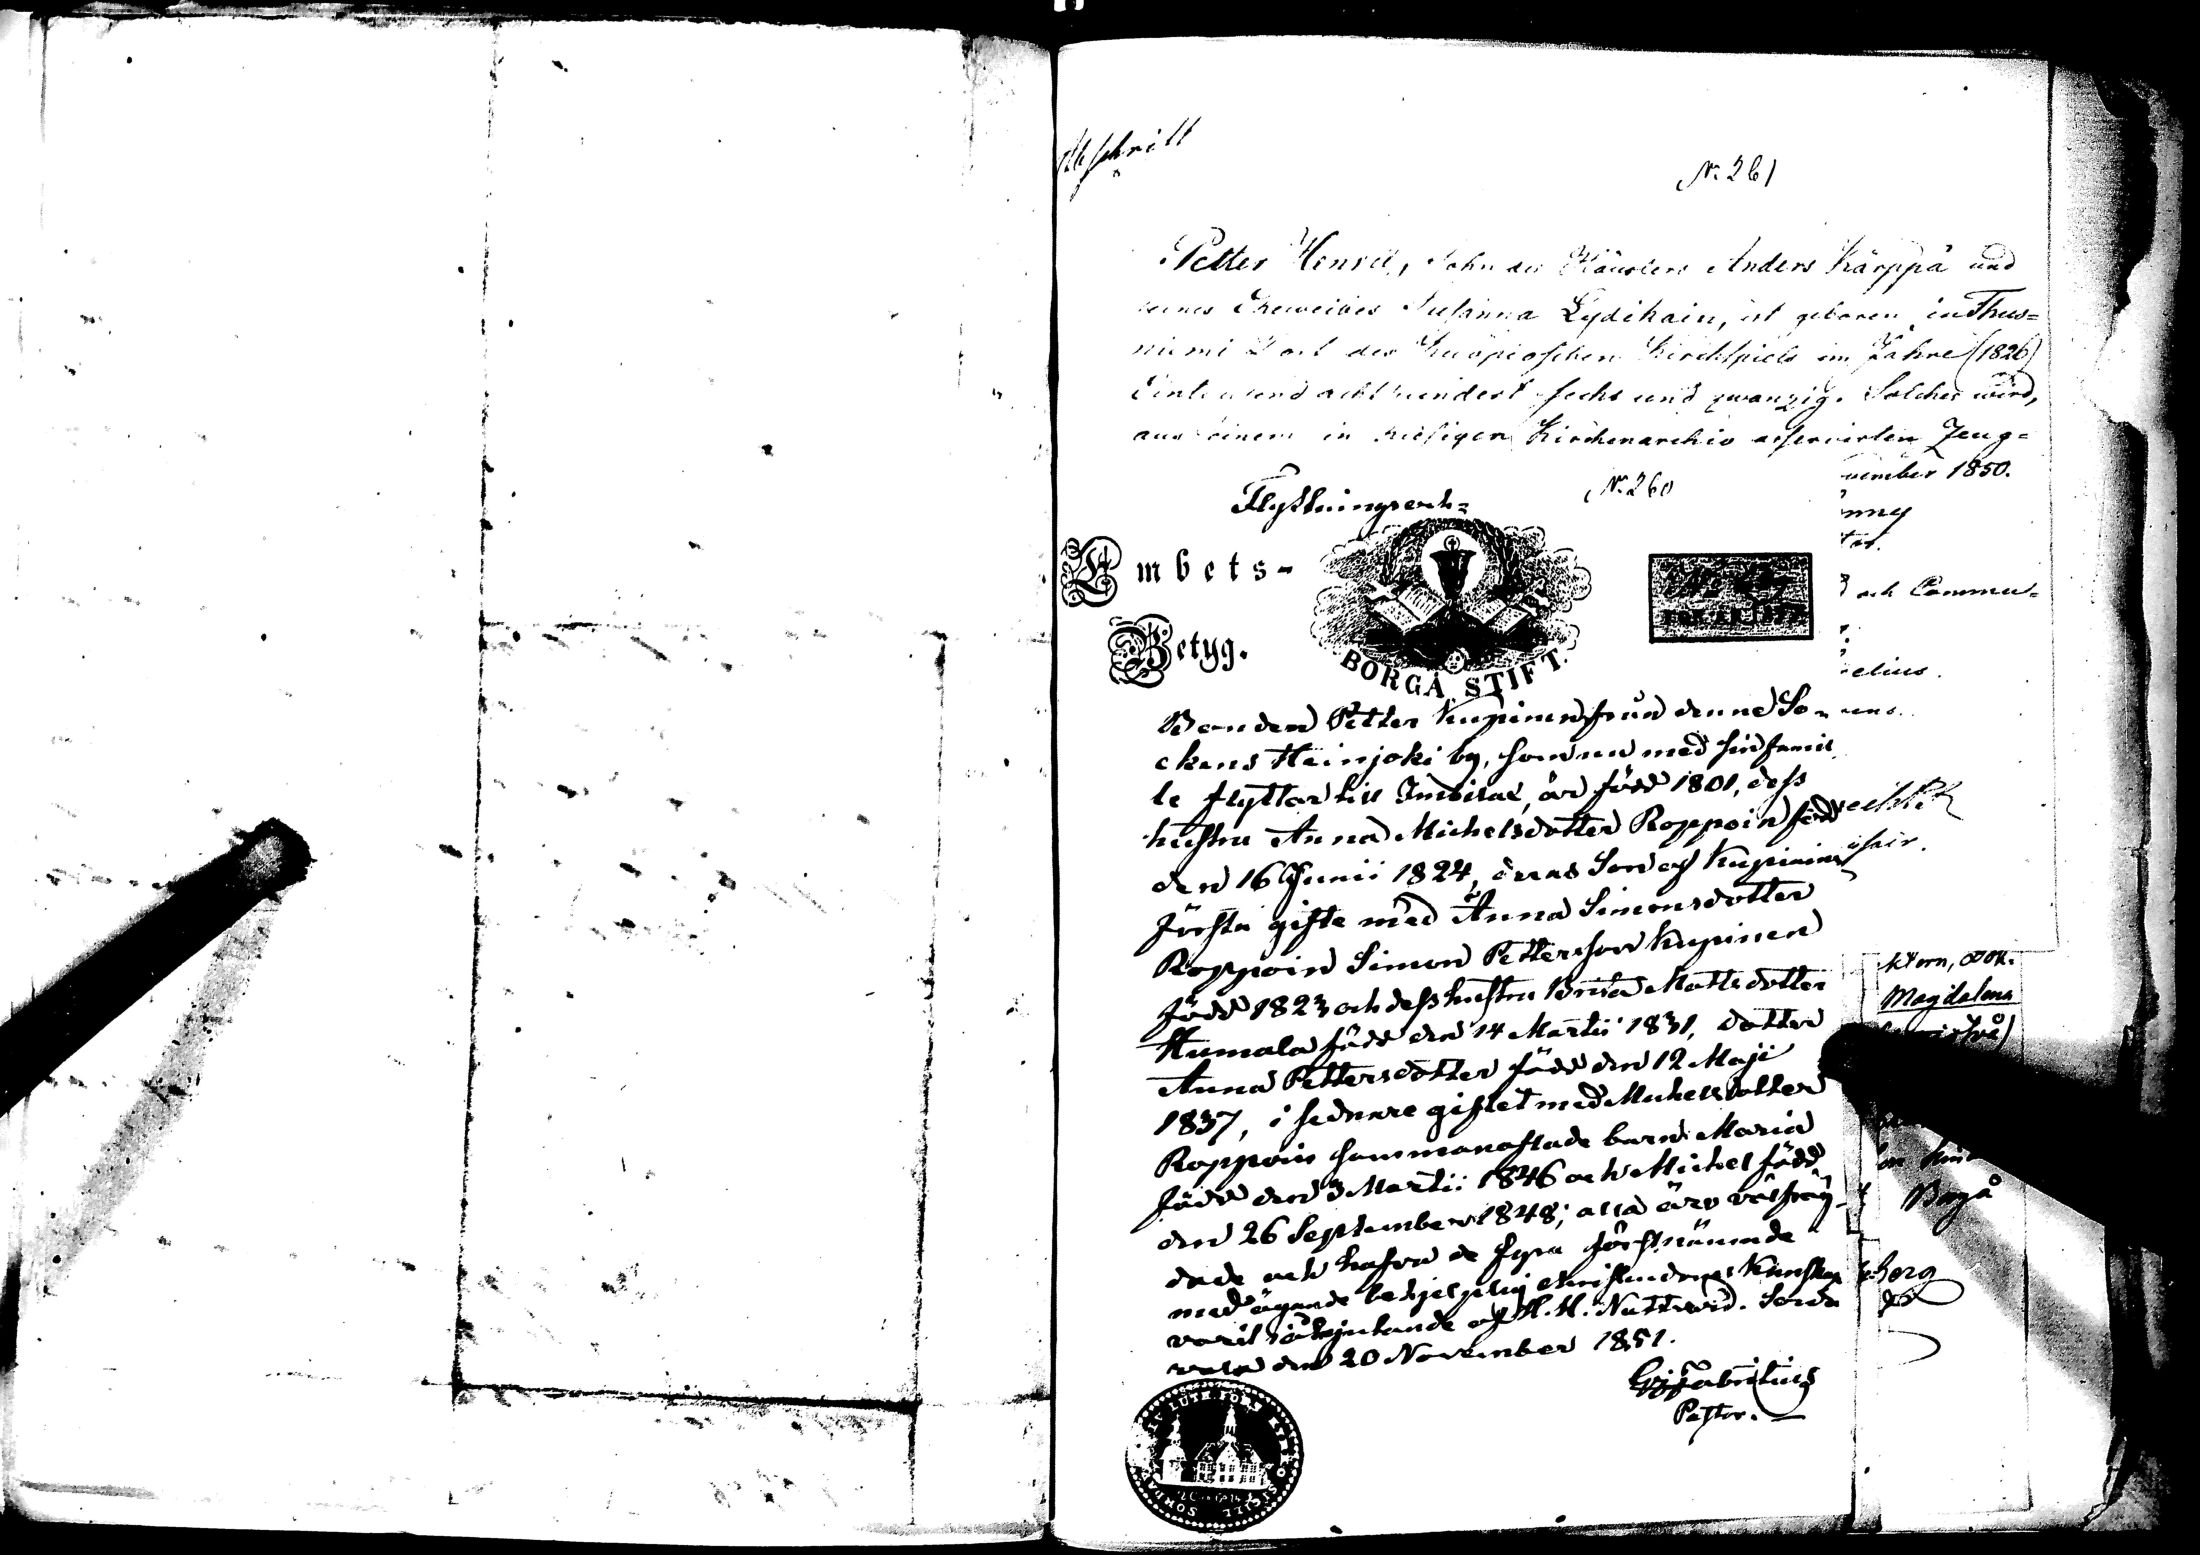 Abschrift
No. 261
Petter Henric, Sohn des Häuslers Anders Kärppä und
seines Eheweibes Susanna Lydikain, ist geboren in Thus=
niemi des Kuopioschen Kirchspiels im Jahre (1826)
Eintausend achthundert sechs und zwanzig. Solches wird,
aus einem in hiesigen Kirchenarchiv asservirten Zeug=
vember 1850.
No. 260
Flyttnings och=
Embets-
Betyg.
BORGÅ STIFT.
och Commu=
elius.
Bonden Petter Kupinen från denne So=
ckens Heinjoki by, som nu med sin famil
le flyttar till, är född 1801, dess
hustru Anna Michelsdotter Roppoin född
den 16 Junii 1824, deras Son af Kupinens
första gifte med Anna Simonsdotter
Roppoin Simon Pettersson Kupinen
född 1823 och dess hustru Brita Mattsdotter
Humala född den 14 Martii 1831, dotter
Anna Pettersdotter född den 12 Maji
1837, i sednare giftet med Michelsdotter
Roppoin sammanaflade barn: Maria
född den 3 Martii 1846 och Michel född
den 26 September 1848; alla äro välfräj-
dade och hafva de fyra förstnämnde
med ägande behjelplig christendoms kunskap
varit åtnjutande af H. H. Nattvard. Sorda
vala den 20 November 1851.
Fabritius
Pastor.
Magdalena
Borgå
borg
SIGILL SORDAVALA